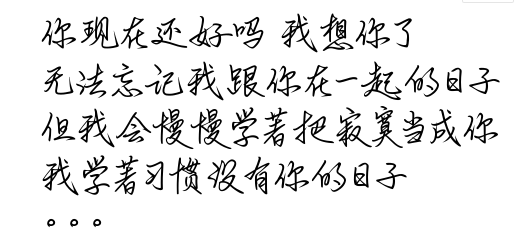 你现在还好吗 我想你了
无法忘记我跟你在一起的日子
但我会慢慢学著把寂寞当成你
我学著习惯没有你的日子
。。。